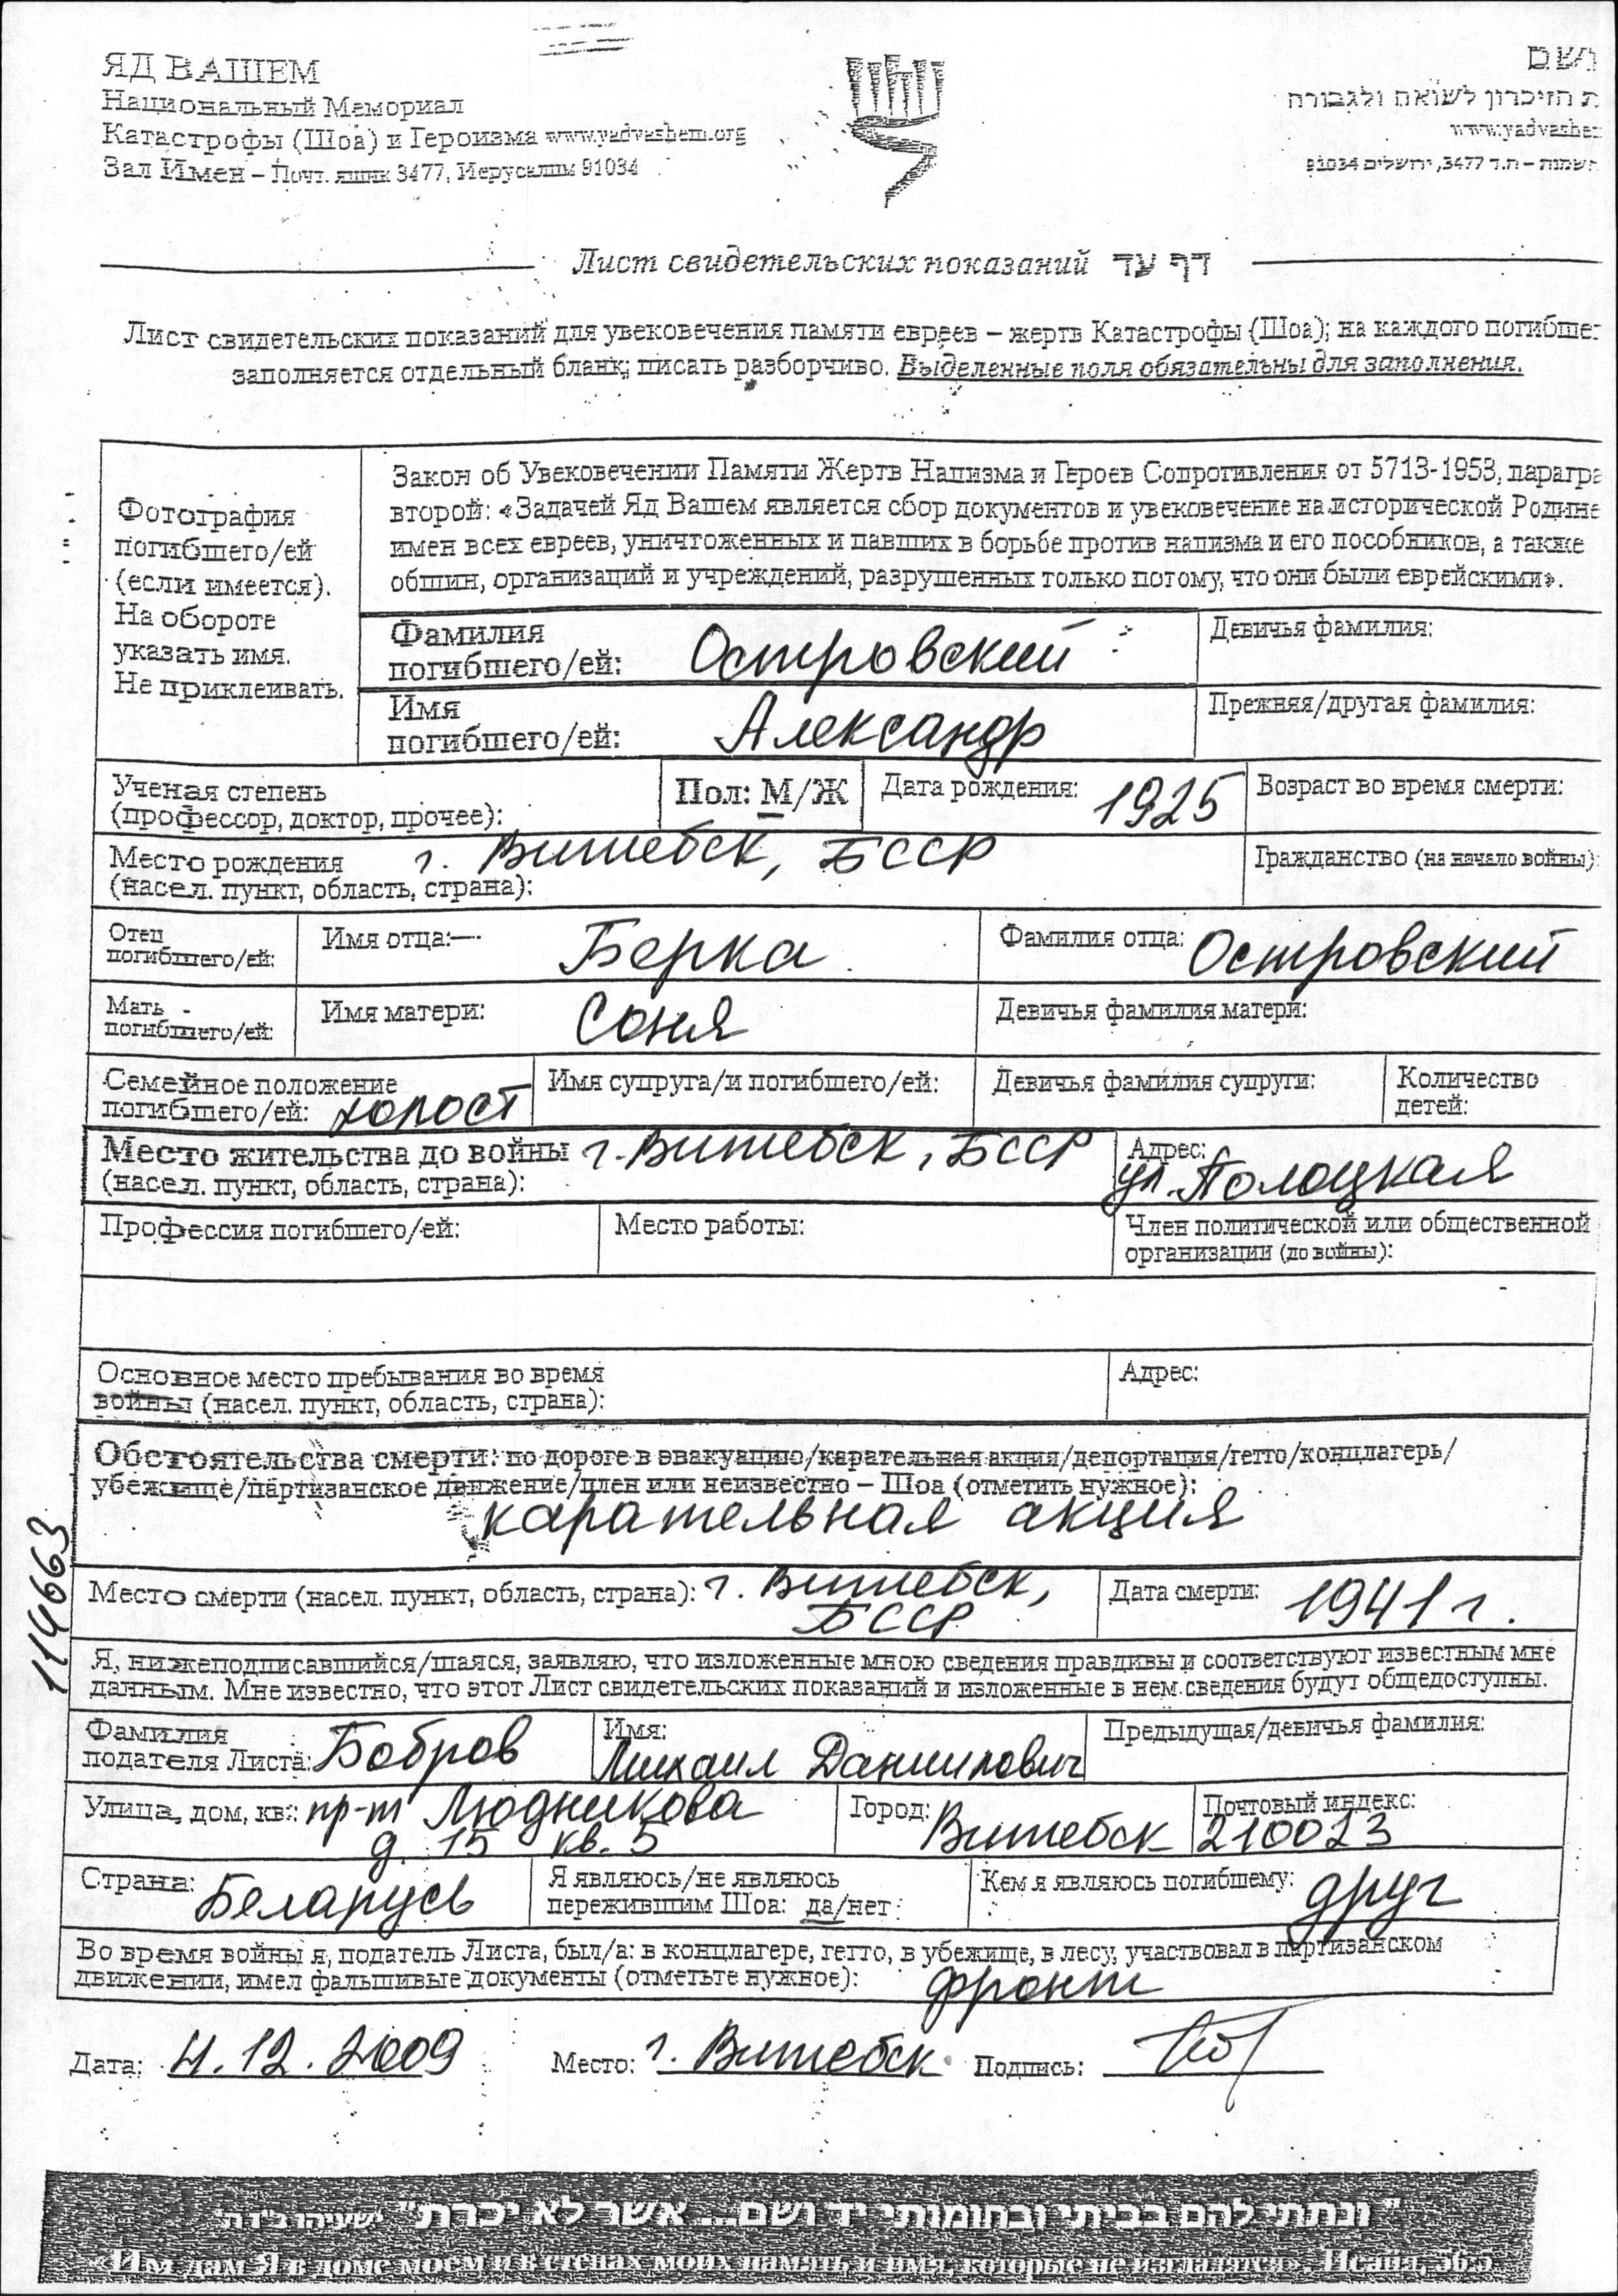 ЯД ВАШЕМ
Национальный Мемориал
Катастрофы (Шоа) и Героизма www.yadvashem.org
Зал Имен – Почт. ящик 3477, Иерусалим 91034
ושם
ת הזיכרון לשואה ולגבורה
www.yadvashe
91034 ירושלים ,3477 ת.ד –
Лист свидетельских показаний דף עד
Лист свидетельских показаний для увековечения памяти евреев – жертв Катастрофы (Шоа); на каждого погибше
заполняется отдельный бланк; писать разборчиво. Выделенные поля обязательны для заполнения.
Фотография
погибшего/ей
(если имеется).
На обороте
указать имя.
Не приклеивать.
Закон об Увековечении Памяти Жертв Нацизма и Героев Сопротивления от 5713-1953, парагра
второй: «Задачей Яд Вашем является сбор документов и увековечение на исторической Родине
имен всех евреев, уничтоженных и павших в борьбе против нацизма и его пособников, а также
общин, организаций и учреждений, разрушенных только потому, что они были еврейскими».
Фамилия
погибшего/ей: Островский
Девичья фамилия:
Имя
погибшего/ей: Александр
Прежняя/другая фамилия:
Ученая степень
(профессор, доктор, прочее):
Пол: М/Ж
Дата рождения: 1925
Возраст во время смерти:
Место рождения г. Витебск, БССР
(насел. пункт, область, страна):
Гражданство (на начало войны):
Отец
погибшего/ей:
Имя отца: Берка
Фамилия отца: Островский
Мать
погибшего/ей:
Имя матери: Соня
Девичья фамилия матери:
Семейное положение
погибшего/ей: холост
Имя супруга/и погибшего/ей:
Девичья фамилия супруги:
Количество
детей:
Место жительства до войны г. Витебск, БССР
(насел. пункт, область, страна):
Адрес:
ул. Полоцкая
Профессия погибшего/ей:
Место работы:
Член политической или общественной
организации (до войны):
Основное место пребывания во время
войны (насел. пункт, область, страна):
Адрес:
Обстоятельства смерти: по дороге в эвакуацию/карательная акция/депортация/гетто/концлагерь/
убежище/партизанское движение/плен или неизвестно – Шоа (отметить нужное):
карательная акция
114663
Место смерти (насел. пункт, область, страна): г. Витебск,
БССР
Дата смерти: 1941 г.
Я, нижеподписавшийся/шаяся, заявляю, что изложенные мною сведения правдивы и соответствуют известным мне
данным. Мне известно, что этот Лист свидетельских показаний и изложенные в нем сведения будут общедоступны.
Фамилия
подателя Листа: Бобров
Имя:
Михаил Данилович
Предыдущая/девичья фамилия:
Улица, дом, кв.: пр-т Людникова
д. 15 кв. 5
Город: Витебск
Почтовый индекс:
210023
Страна: Беларусь
Я являюсь/не являюсь
пережившим Шоа: да/нет
Кем я являюсь погибшему: друг
Во время войны я, податель Листа, был/а: в концлагере, гетто, в убежище, в лесу, участвовал в партизанском
движении, имел фальшивые документы (отметьте нужное): фронт
Дата: 4.12.2009 Место: г. Витебск Подпись:
"ונתתי להם בביתי ובחומותי יד ושם... אשר לא יכרת" ישעיהו נ"ו ה'
«Им дам Я в доме моем и в стенах моих память и имя, которые не изгладятся». Исайя, 56:5